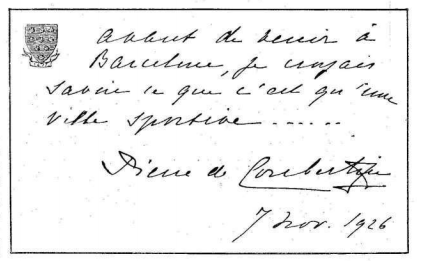 avant de venir à
Barcelone, je croyais
savoir ce que c'est qu'une
ville sportive ......
Pierre de Coubertin
7 nov. 1926